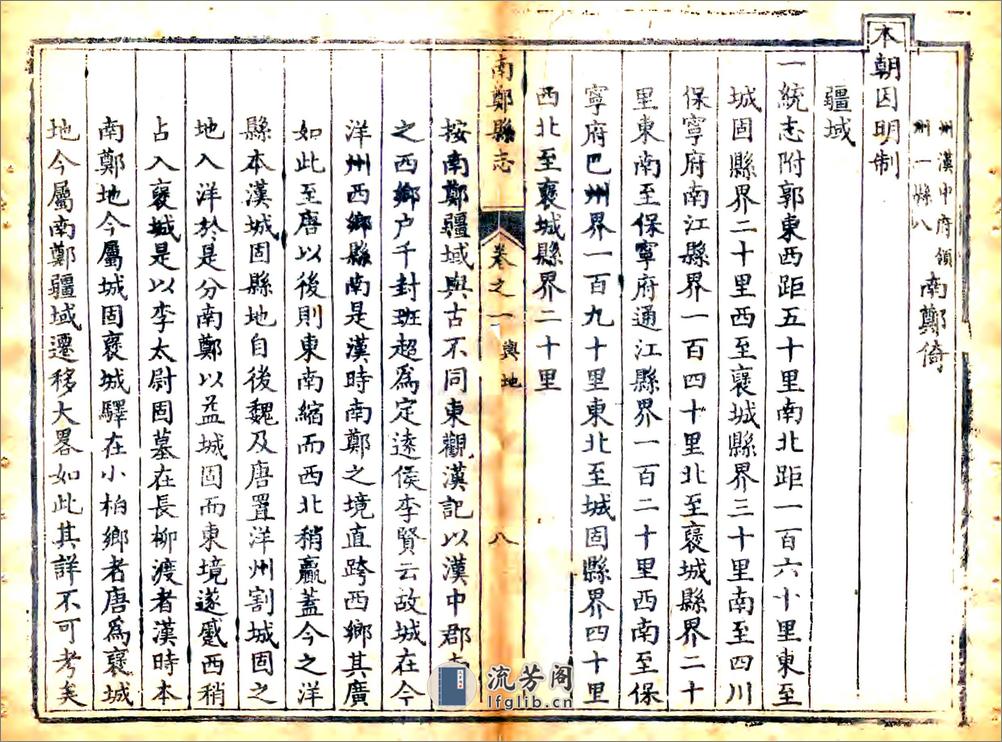 州漢中府領
州一縣八
南鄭倚
本朝因明制
疆域
一統志附郭東西距五十里南北距一百六十里東至
城固縣界二十里西至褒城縣界三十里南至四川
保寧府南江縣界一百四十里北至褒城縣界二十
里東南至保寧府通江縣界一百二十里西南至保
寧府巴州界一百九十里東北至城固縣界四十里
西北至褒城縣界二十里
南鄭縣志 卷之一 輿地 八
按南鄭疆域與古不同東觀漢記以漢中郡南
之西鄉户千封班超為定逺侯李賢云故城在今
洋州西鄉縣南是漢時南鄭之境直跨西鄉其廣
如此至唐以後則東南縮而西北稍贏蓋今之洋
縣本漢城固縣地自後魏及唐置洋州割城固之
地入洋於是分南鄭以益城固而東境遂蹙西稍
占入褒城是以李太尉固墓在長柳渡者漢時本
南鄭地今屬城固褒城驛在小柏鄉者唐為褒城
地今屬南鄭疆域遷移大畧如此其詳不可考矣
流芳阁
lfglib.cn